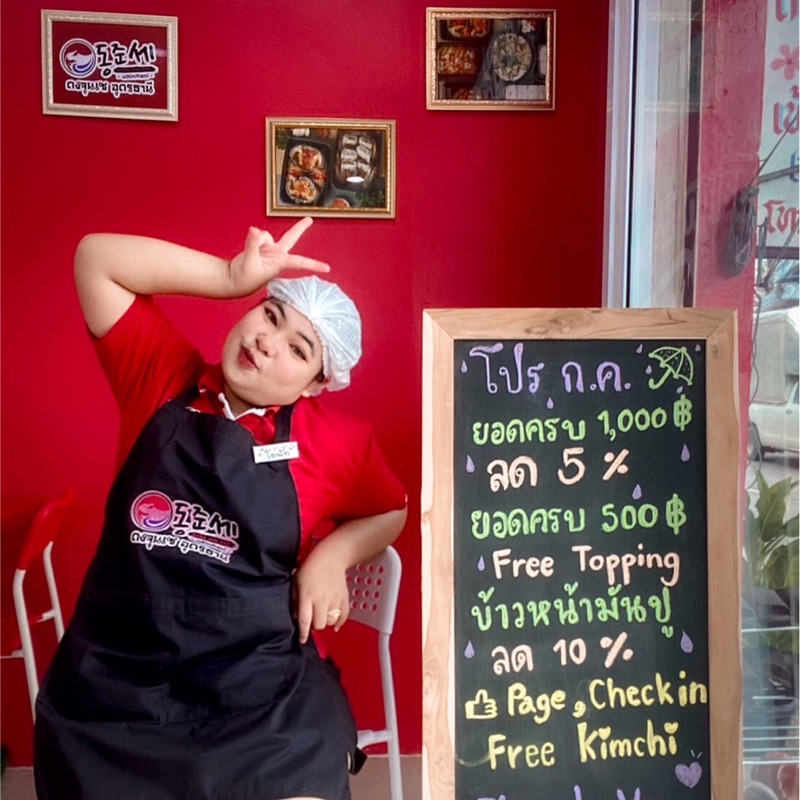 동춘세
ดงจุนเซ อุดรธานี
동춘세
ดงจุนเซ อุดรธานี
โปร ก.ค.
ยอดครบ 1,000 ฿
ลด 5 %
ยอดครบ 500 ฿
Free Topping
ข้าวหน้ามันปู
ลด 10 %
Page, Check in
Free Kimchi